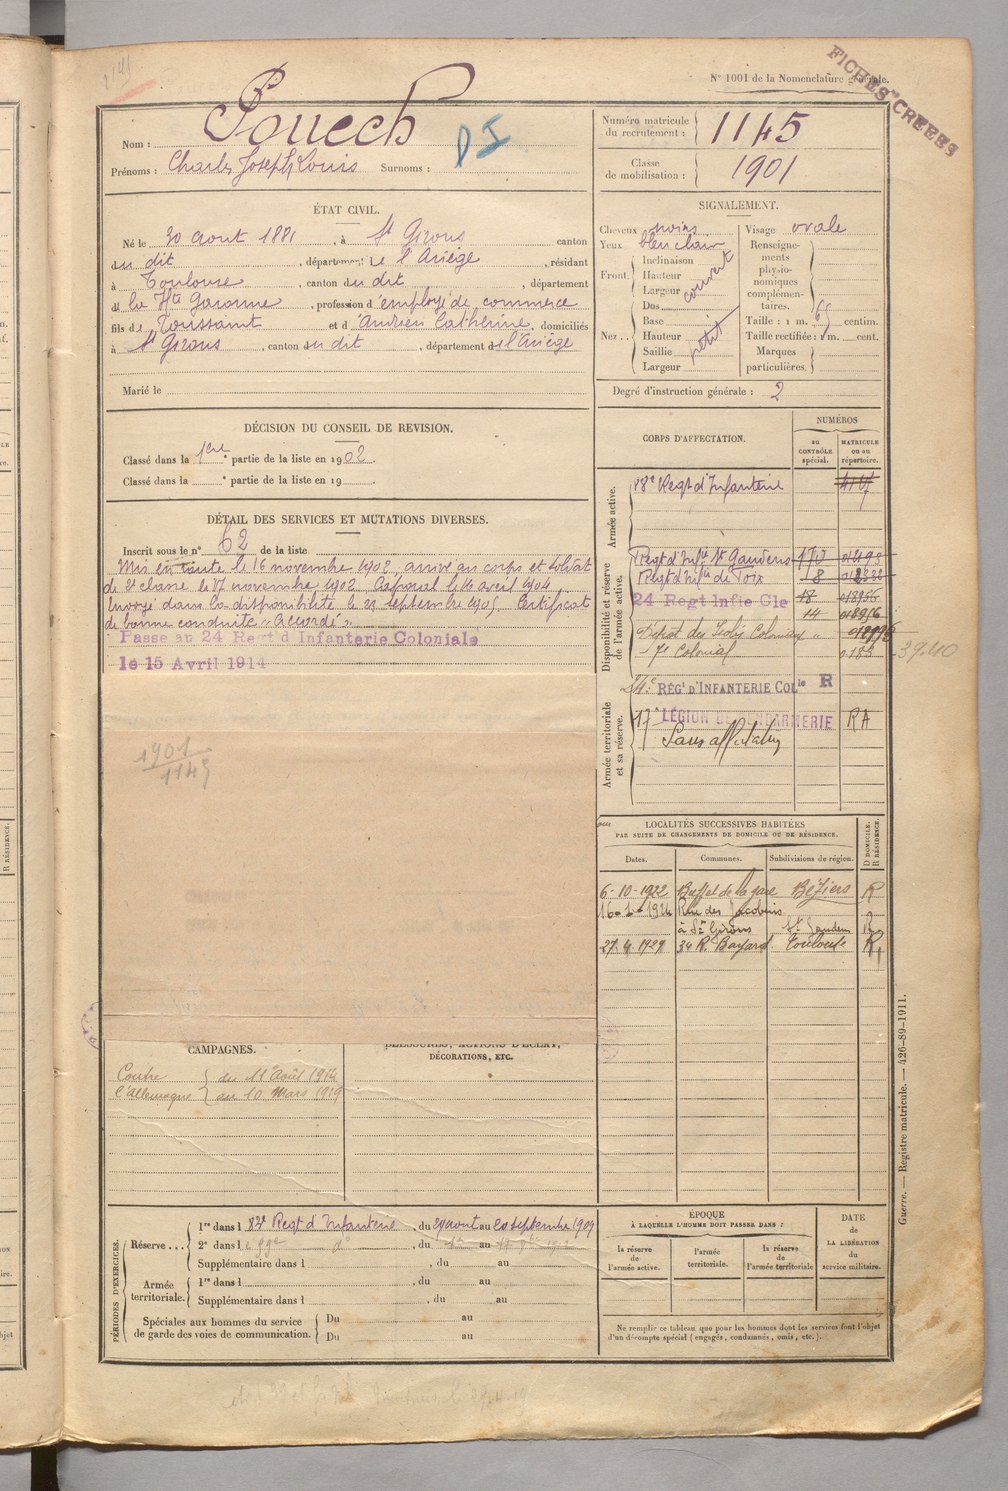 N° 1001 de la Nomenclature générale.
FICHES CRÉÉES
Nom : Pouech
PI
Prénoms : Charles Joseph Louis Surnoms :
Numéro matricule du recrutement : 1145
Classe de mobilisation : 1901
ÉTAT CIVIL.
Né le 30 août 1881, à St Girons canton
du dit, département de l'Ariège, résidant
à Toulouse, canton du dit, département
de la Hte Garonne, profession d'employé de commerce
fils de Toussaint et d'Andrien Catherine, domiciliés
à St Girons, canton du dit, département de l'Ariège
Marié le
SIGNALEMENT.
Cheveux noirs Visage ovale
Yeux bleu clair Renseignements physionomiques complémentaires.
Front. Inclinaison
Hauteur couvert
Largeur
Nez .. Dos
Base
Hauteur petit
Saillie
Largeur
Taille : 1 m. 65 centim.
Taille rectifiée : 1 m. cent.
Marques particulières.
Degré d'instruction générale : 2
DÉCISION DU CONSEIL DE REVISION.
Classé dans la 1ère partie de la liste en 1902.
Classé dans la ° partie de la liste en 19 .
DÉTAIL DES SERVICES ET MUTATIONS DIVERSES.
Inscrit sous le n° 62 de la liste
Mis en route le 16 novembre 1902, arrivé au corps et soldat
de 2e classe le 17 novembre 1902. Caporal le 14 avril 1904.
Envoyé dans la disponibilité le 23 septembre 1905. Certificat
de bonne conduite "Accordé"
Passé au 24 Regt d'Infanterie Coloniale
le 15 Avril 1914
1901
1145
CORPS D'AFFECTATION.
NUMÉROS
au CONTRÔLE spécial.
MATRICULE ou au répertoire.
Armée active.
18e Regt d'Infanterie
Disponibilité et réserve de l'armée active.
Regt d'Infie St Gaudens
Regt d'Infie de Foix 8
24 Regt Infie Cle 18 018956
14 018956
Dépôt des Isolés Coloniaux
7e Colonial 0.183
39.40
Armée territoriale et sa réserve.
24e RÉGt D'INFANTERIE COLle R
17e LÉGION DE GENDARMERIE RA
Sans affectation
LOCALITÉS SUCCESSIVES HABITÉES
PAR SUITE DE CHANGEMENTS DE DOMICILE OU DE RÉSIDENCE.
Dates. Communes. Subdivisions de région. D DOMICILE. R RÉSIDENCE.
6-10-1922 Buffet de la gare Béziers R
16-2-1924 Rue des Jacobins
à St Girons St Gaudens R
27.4.1929 34 R. Bayard Toulouse R
CAMPAGNES.
Contre l'Allemagne du 11 Août 1914
au 10 Mars 1919
BLESSURES, ACTIONS D'ÉCLAT,
DÉCORATIONS, ETC.
PÉRIODES D'EXERCICES.
Réserve ... 1re dans l 83e Regt d'Infanterie, du 29 aout au 20 septembre 1909
2e dans l e 59e do, du au
Supplémentaire dans l , du au
Armée territoriale. 1re dans l , du au
Supplémentaire dans l , du au
Spéciales aux hommes du service de garde des voies de communication. Du au
Du au
ÉPOQUE
À LAQUELLE L'HOMME DOIT PASSER DANS :
la réserve de l'armée active.
l'armée territoriale.
la réserve de l'armée territoriale
DATE de LA LIBÉRATION du service militaire.
Ne remplir ce tableau que pour les hommes dont les services font l'objet
d'un décompte spécial (engagés, condamnés, omis, etc.).
Guerre. — Registre matricule. — 426-89-1911.